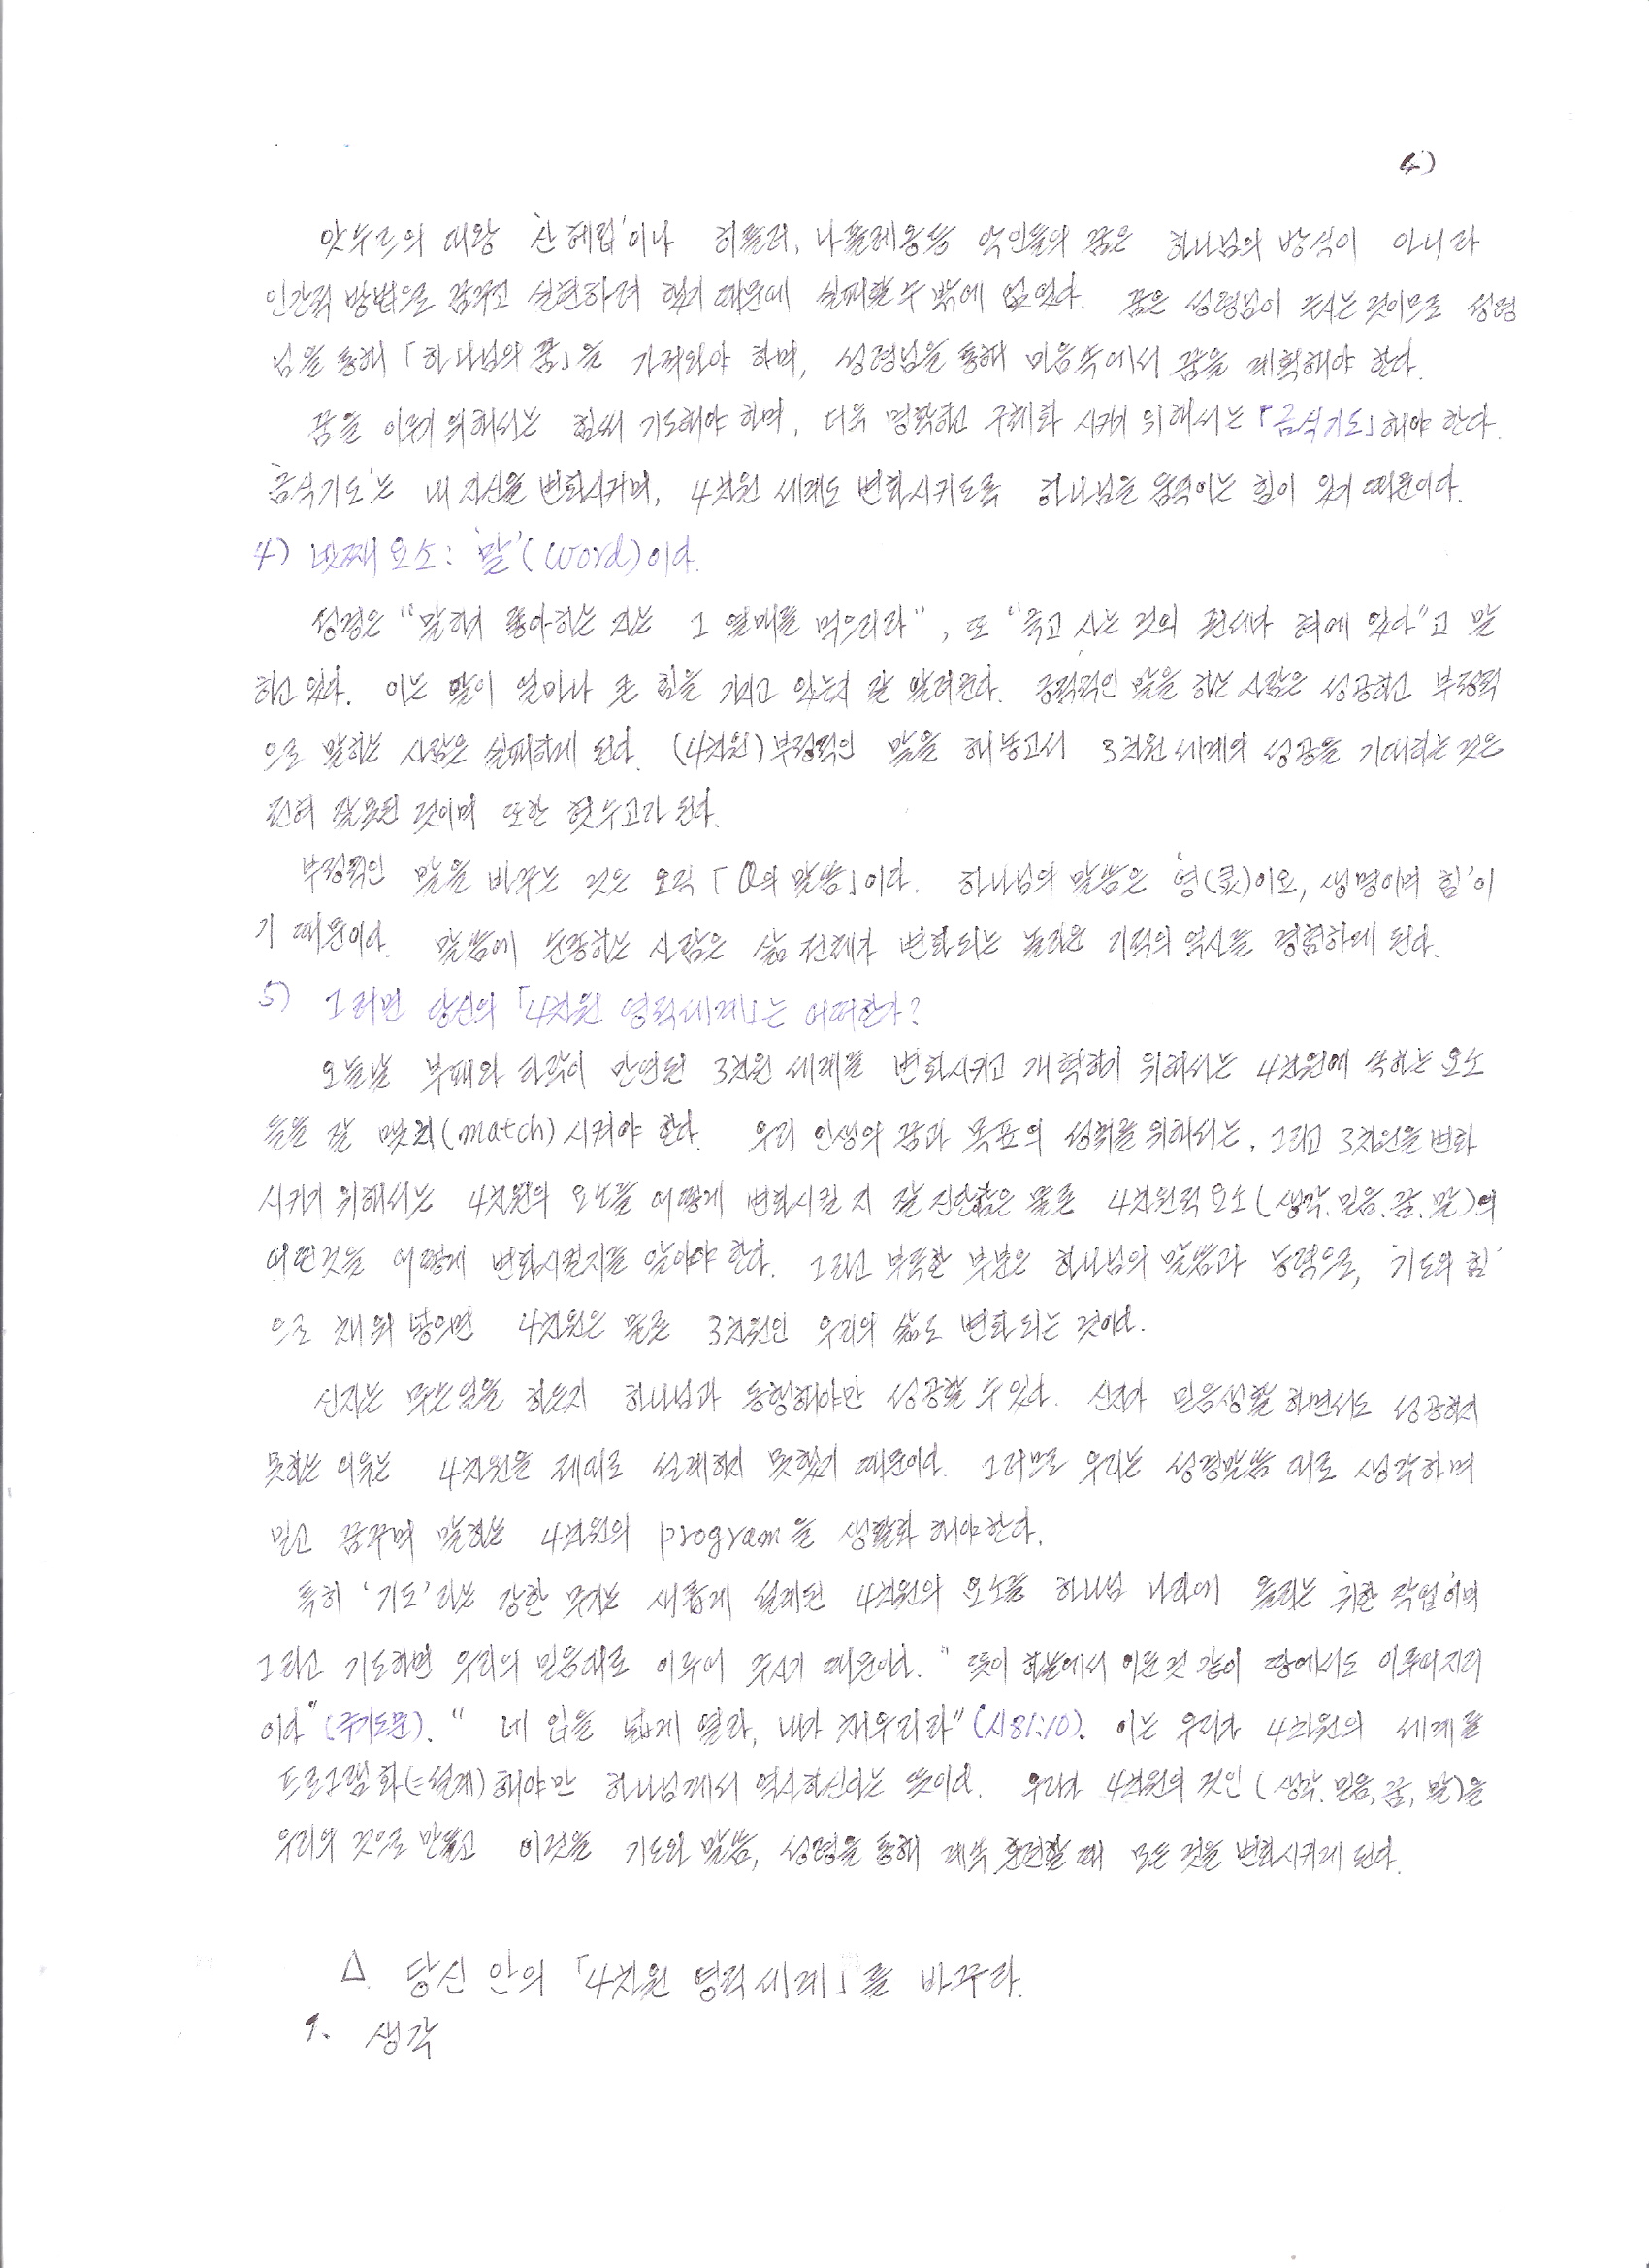 4)
앗수르의 대왕 '산헤립'이나 히틀러, 나폴레옹등 악인들의 꿈은 하나님의 방식이 아니라
인간적 방법으로 꿈꾸고 실현하려 했기 때문에 실패할 수 밖에 없었다. 꿈은 성령님이 주시는 것이므로 성령
님을 통해 「하나님의 꿈」을 가져와야 하며, 성령님을 통해 마음속에서 꿈을 계획해야 한다.
꿈을 이루기 위해서는 힘써 기도해야 하며, 더욱 명확한 구체화 시키기 위해서는 「금식기도」해야 한다.
'금식기도'는 내 자신을 변화시키며, 4차원 세계도 변화시키도록 하나님을 움직이는 힘이 있기 때문이다.
4) 넷째 요소: '말'(word)이다.
성경은 "말하기 좋아하는 자는 그 열매를 먹으리라", 또 "죽고 사는 것의 권세가 혀에 있다"고 말
하고 있다. 이는 말이 얼마나 큰 힘을 가지고 있는지 잘 알려준다. 긍정적인 말을 하는 사람은 성공하고 부정적
으로 말하는 사람은 실패하게 된다. (4차원)부정적인 말을 해놓고서 3차원세계의 성공을 기대하는 것은
전혀 잘못된 것이며 또한 헛수고가 된다.
부정적인 말을 바꾸는 것은 오직 「의 말씀」이다. 하나님의 말씀은 '영(靈)이요, 생명이며 힘'이
기 때문이다. 말씀에 순종하는 사람은 삶 전체가 변화되는 놀라운 기적의 역사를 경험하게 된다.
5) 그러면 당신의 「4차원 영적세계」는 어떠한가?
오늘날 부패와 타락이 만연된 3차원 세계를 변화시키고 개혁하기 위해서는 4차원에 속하는 요소
들을 잘 맷치(match)시켜야 한다. 우리 인생의 꿈과 목표의 성취를 위해서는, 그리고 3차원을 변화
시키기 위해서는 4차원의 요소를 어떻게 변화시킬 지 잘 진단함은 물론 4차원적 요소(생각.믿음.꿈.말)의
어떤것을 어떻게 변화시킬지를 알아야 한다. 그리고 부족한 부분은 하나님의 말씀과 능력으로, '기도의 힘'
으로 채워 넣으면 4차원은 물론 3차원인 우리의 삶도 변화되는 것이다.
신자는 무슨일을 하든지 하나님과 동행해야만 성공할 수 있다. 신자가 믿음생활 하면서도 성공하지
못하는 이유는 4차원을 제대로 설계하지 못했기 때문이다. 그러므로 우리는 성경말씀 대로 생각하며
믿고 꿈꾸며 말하는 4차원의 program을 생활화 해야한다.
특히 '기도'라는 강한 무기는 새롭게 설계된 4차원의 요소를 하나님 나라에 올리는 귀한 작업이며
그리고 기도하면 우리의 믿음대로 이루어 주시기 때문이다. "뜻이 하늘에서 이룬것 같이 땅에서도 이루어지리
이다"(주기도문). "네 입을 넓게 열라, 내가 채우리라"(시81:10). 이는 우리가 4차원의 세계를
프로그램화(=설계)해야만 하나님께서 역사하신다는 뜻이다. 우리가 4차원의 것인 (생각.믿음,꿈,말)을
우리의 것으로 만들고 이것을 기도와 말씀, 성령을 통해 계속 훈련할 때 모든 것을 변화시키게 된다.
△. 당신 안의 「4차원 영적세계」를 바꾸라.
1. 생각